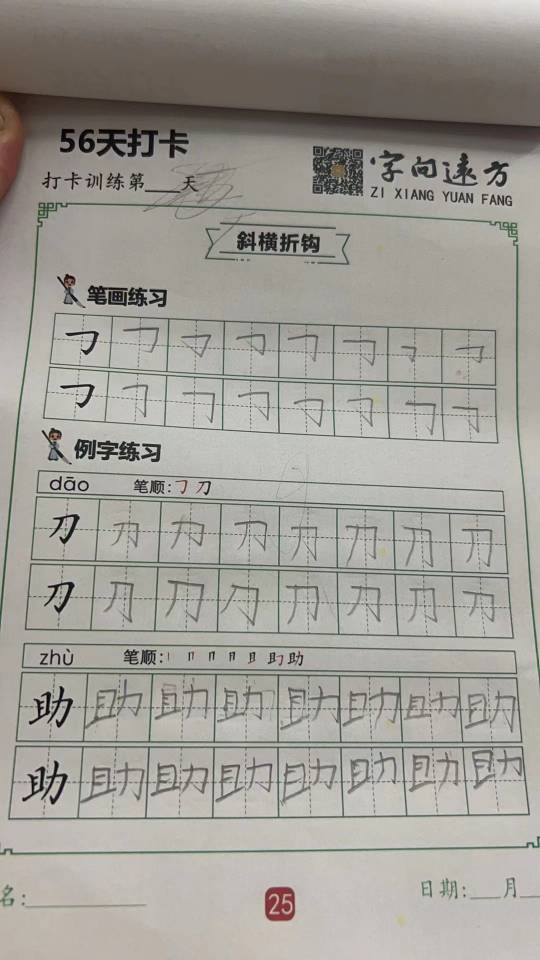 56天打卡
打卡训练第___天
字向远方
ZI XIANG YUAN FANG
斜横折钩
笔画练习
㇆ ㇆ ㇆ ㇆ ㇆ ㇆ ㇆ ㇆
㇆ ㇆ ㇆ ㇆ ㇆ ㇆ ㇆ ㇆
例字练习
dāo 笔顺:㇆ 刀
刀 刀 刀 刀 刀 刀 刀 刀
刀 刀 刀 刀 刀 刀 刀 刀
zhù 笔顺:丨 冂 冂 月 且 助 助
助 助 助 助 助 助 助 助
助 助 助 助 助 助 助 助
名:
日期:___月
25